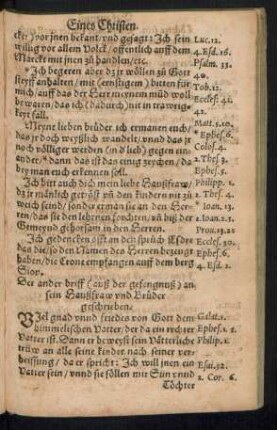 Eines Christen.
cker) vor jnen bekant/ vnd gesagt: Ich sein Luc.12.
willig vor allem Volck/ offentlich auff dem 4. Esd. 16.
Marckt mit jnen zů handlen/ etc. Psalm. 33.
Ich begeren aber dz jr wöllen zů Gott 40.
steyff anhalten/ mit (ernstigem) bitten für Tob.12.
mich/ auff das der Herr mein můt wöll Eccles. 41.
bewaren/ das ich (dadurch) nit in trawrig- 42.
keyt fall. Matt.5.10.
Meyne lieben brüder ich ermanen euch/ Ephes. 6.
das jr doch weyßlich wandelt/ vnnd das jr Colos. 4.
noch völliger werdet (in d lieb) gegen ein 2. Thes. 3.
ander/ dann das ist das einig zeychen/ da 1. Thes.
bey man euch erkennen sol. Ephes. 5.
Ich bitt auch dich mein liebe Haußfraw/ Philipp. 1.
dz jr mänlich getröst vñ den kindern nit zů 1. Thes. 2.
weich seind/ sonder jr man sie an den Her- Joan. 13.
ren/ das sie den lehrnen förchten/ vñ biß der 1. Joan.2.3.
Gemeynd gehorsam in den Herren. Prou.13.22
Ich gedencken offt an den spruch Esdre Eccles. 30.
das die/ so den Namen des Herren bezeugt Ephes. 6.
haben/ die Crone empfangen auff dem berg 4. Esd. 2.
Sion.
Der ander brieff (auß der gefengnuß) an
sein Haußfraw vnd Brüder
geschriben.
VIel gnad vnnd frieden von Gott dem Galat.1.
himmelischen Vatter/ der da ein rechter Ephes. 1.
Vatter ist. Dann er beweyßt sein Vätterliche Philip.1.
trüw an alle seine kinder nach seiner ver-
heissung/ da er spricht: Ich will jnen ein Esai.12.
Vatter sein/ vnnd sie söllen mir Sün vnnd 2. Cor. 6.
Töchter